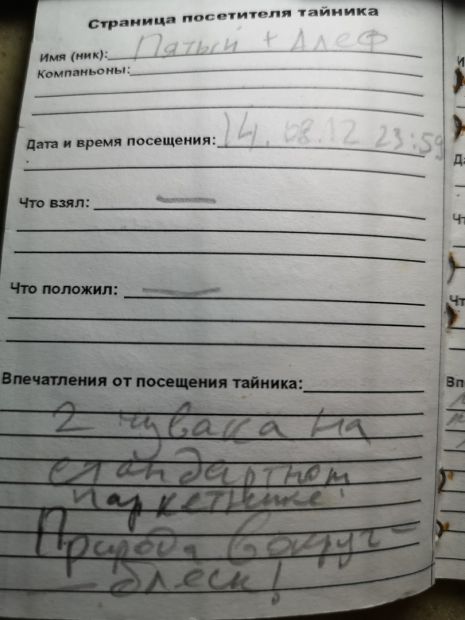 Страница посетителя тайника
Имя (ник): Пятый + Алеф
Компаньоны:
Дата и время посещения: 14.08.12 23:59
Что взял: —
Что положил: —
Впечатления от посещения тайника:
2 чувака на
стандартном
паркетнике!
Природа вокруг –
– блеск!